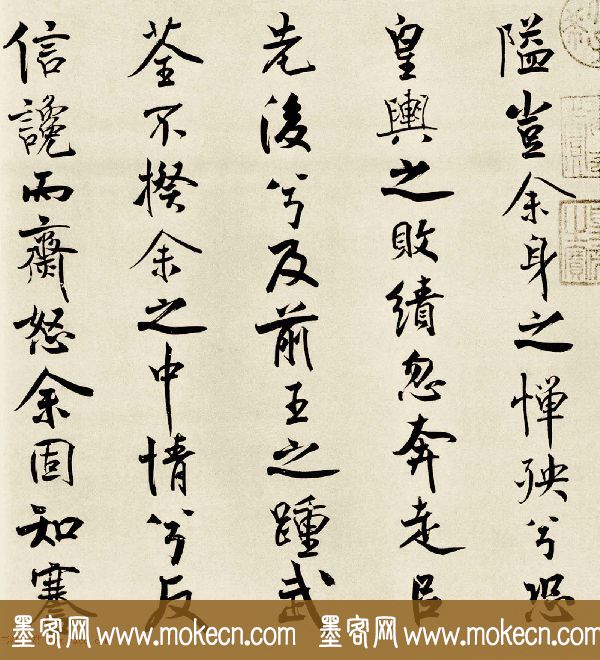 隘豈余身之憚殃兮恐
皇輿之敗績忽奔走㠯
先後兮及前王之踵武
荃不揆余之中情兮反
信讒而齌怒余固知謇
墨客网 www.mokecn.com 墨客网 www.mokecn.com